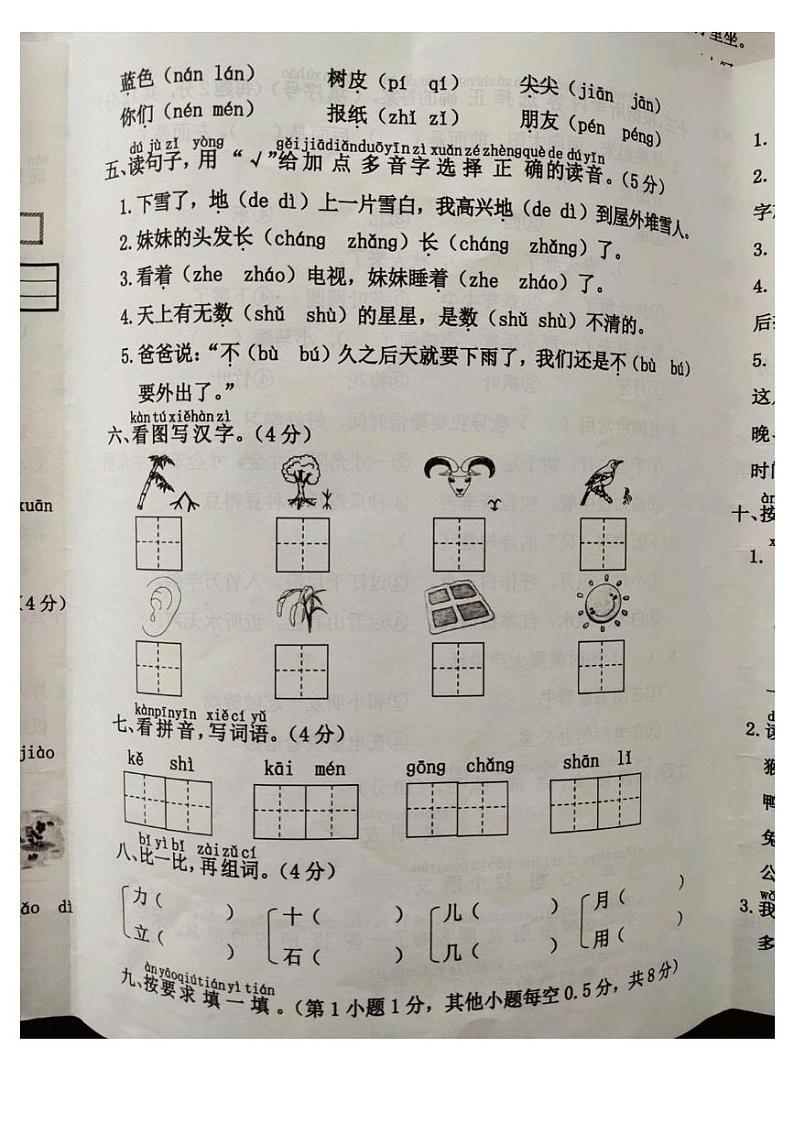 里坐。
蓝色（nán lán） 树皮（pí qí） 尖尖（jiān jān）
你们（nén mén） 报纸（zhǐ zǐ） 朋友（pén péng）
dú jù zǐ yòng gěi jiā diǎn duō yīn zì xuǎn zé zhèng què de dú yīn
五、读句子，用“√”给加点多音字选择正确的读音。（5分）
1.下雪了，地（de dì）上一片雪白，我高兴地（de dì）到屋外堆雪人。
2.妹妹的头发长（cháng zhǎng）长（cháng zhǎng）了。
3.看着（zhe zháo）电视，妹妹睡着（zhe zháo）了。
4.天上有无数（shǔ shù）的星星，是数（shǔ shù）不清的。
5.爸爸说：“不（bù bú）久之后天就要下雨了，我们还是不（bù bú）
要外出了。”
kàn tú xiě hàn zì
六、看图写汉字。（4分）
kàn pīn yīn xiě cí yǔ
七、看拼音，写词语。（4分）
kě shì kāi mén gōng chǎng shān lǐ
bǐ yì bǐ zài zǔ cí
八、比一比，再组词。（4分）
力（ ） 十（ ） 儿（ ） 月（ ）
立（ ） 石（ ） 几（ ） 用（ ）
àn yāo qiú tián yì tián
九、按要求填一填。（第1小题1分，其他小题每空0.5分，共8分）
xuān
（4分）
jiào
ǎo dì
1.
2.
字
3.
4.
后
5.
这
晚、
时间
十、按
1.
2.读
猴
鸭
兔
公
3.我
多